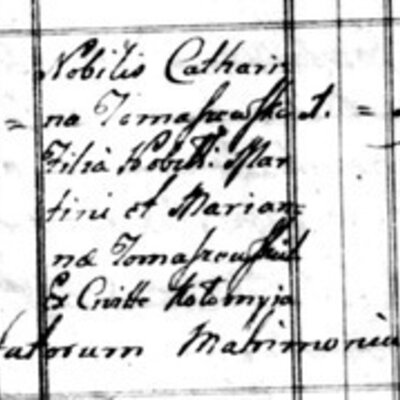 Nobilis Cathari
na Tomaszewska t.
Filia Nobili: Mar
tini et Marian:
næ Tomaszewski
Ex Civitte Kołomyja
Matrimoniu